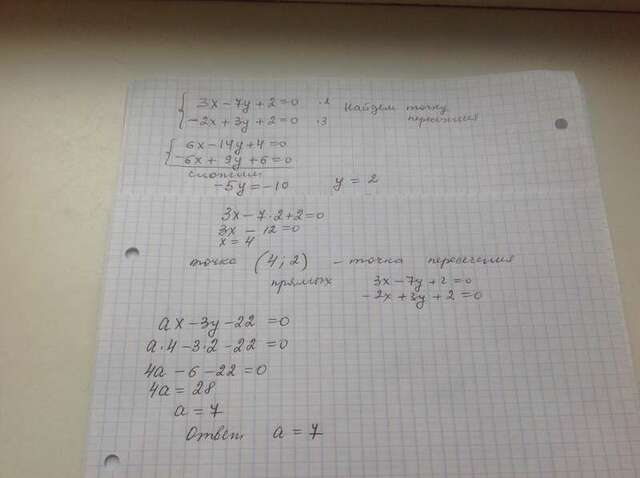 3x - 7y + 2 = 0 · 2 Найдем точку
-2x + 3y + 2 = 0 · 3 пересечения
6x - 14y + 4 = 0
-6x + 9y + 6 = 0
сложим
-5y = -10 y = 2
3x - 7·2 + 2 = 0
3x - 12 = 0
x = 4
точка (4; 2) - точка пересечения
прямых 3x - 7y + 2 = 0
-2x + 3y + 2 = 0
ax - 3y - 22 = 0
a·4 - 3·2 - 22 = 0
4a - 6 - 22 = 0
4a = 28
a = 7
Ответ a = 7